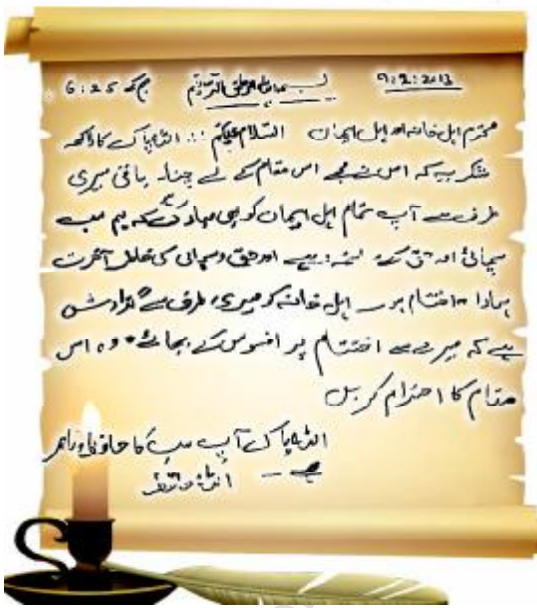 9:2:2013 بسم اللہ الرحمٰن الرحیم صبح 6:25
محترم اہل خانہ اور اہل ایمان السلام علیکم :: اللہ پاک کا لاکھ
شکر ہے کہ اس نے مجھے اس مقام کے لیے چنا۔ باقی میری
طرف سے آپ تمام اہل ایمان کو بھی مبارک کہ ہم سب
سچائی اور حق کے لیے رہے اور حق و سچائی کی خاطر آخرت
ہمارا اختتام ہو۔ اہل خانہ کو میری طرف سے گزارش
ہے کہ میرے اختتام پر افسوس کے بجائے وہ اس
مقام کا احترام کریں
اللہ پاک آپ سب کا حافظ و ناصر
ہے —